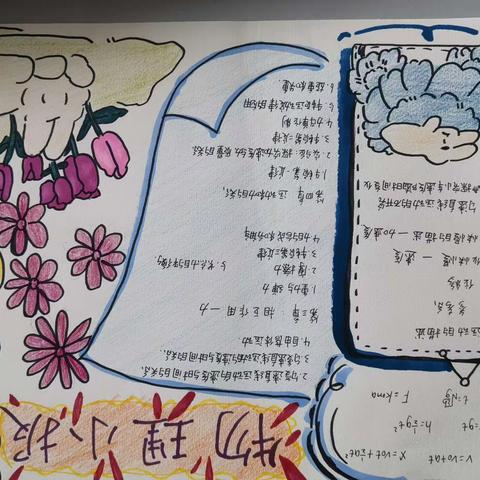 物理小报
v=v₀+at
x=v₀t+½at²
=gt
h=½gt²
F=kma
运动的描述
参考系
位移
快慢的描述 — 速度
快慢的描述 — 加速度
匀变速直线运动的研究
探究小车速度随时间变化
2.匀变速直线运动的速度与时间的关系.
3.匀变速直线运动的位移与时间的关系.
4.自由落体运动
第三章: 相互作用—力
1.重力与弹力
2.摩擦力
3.牛顿第三定律
4.力的合成和分解
5.共点力的平衡
第四章 运动和力的关系,
1.牛顿第一定律
2.实验:探究加速度与力、质量的关系.
3.牛顿第二定律
4.力学单位制
5.牛顿运动定律的应用
6.超重和失重